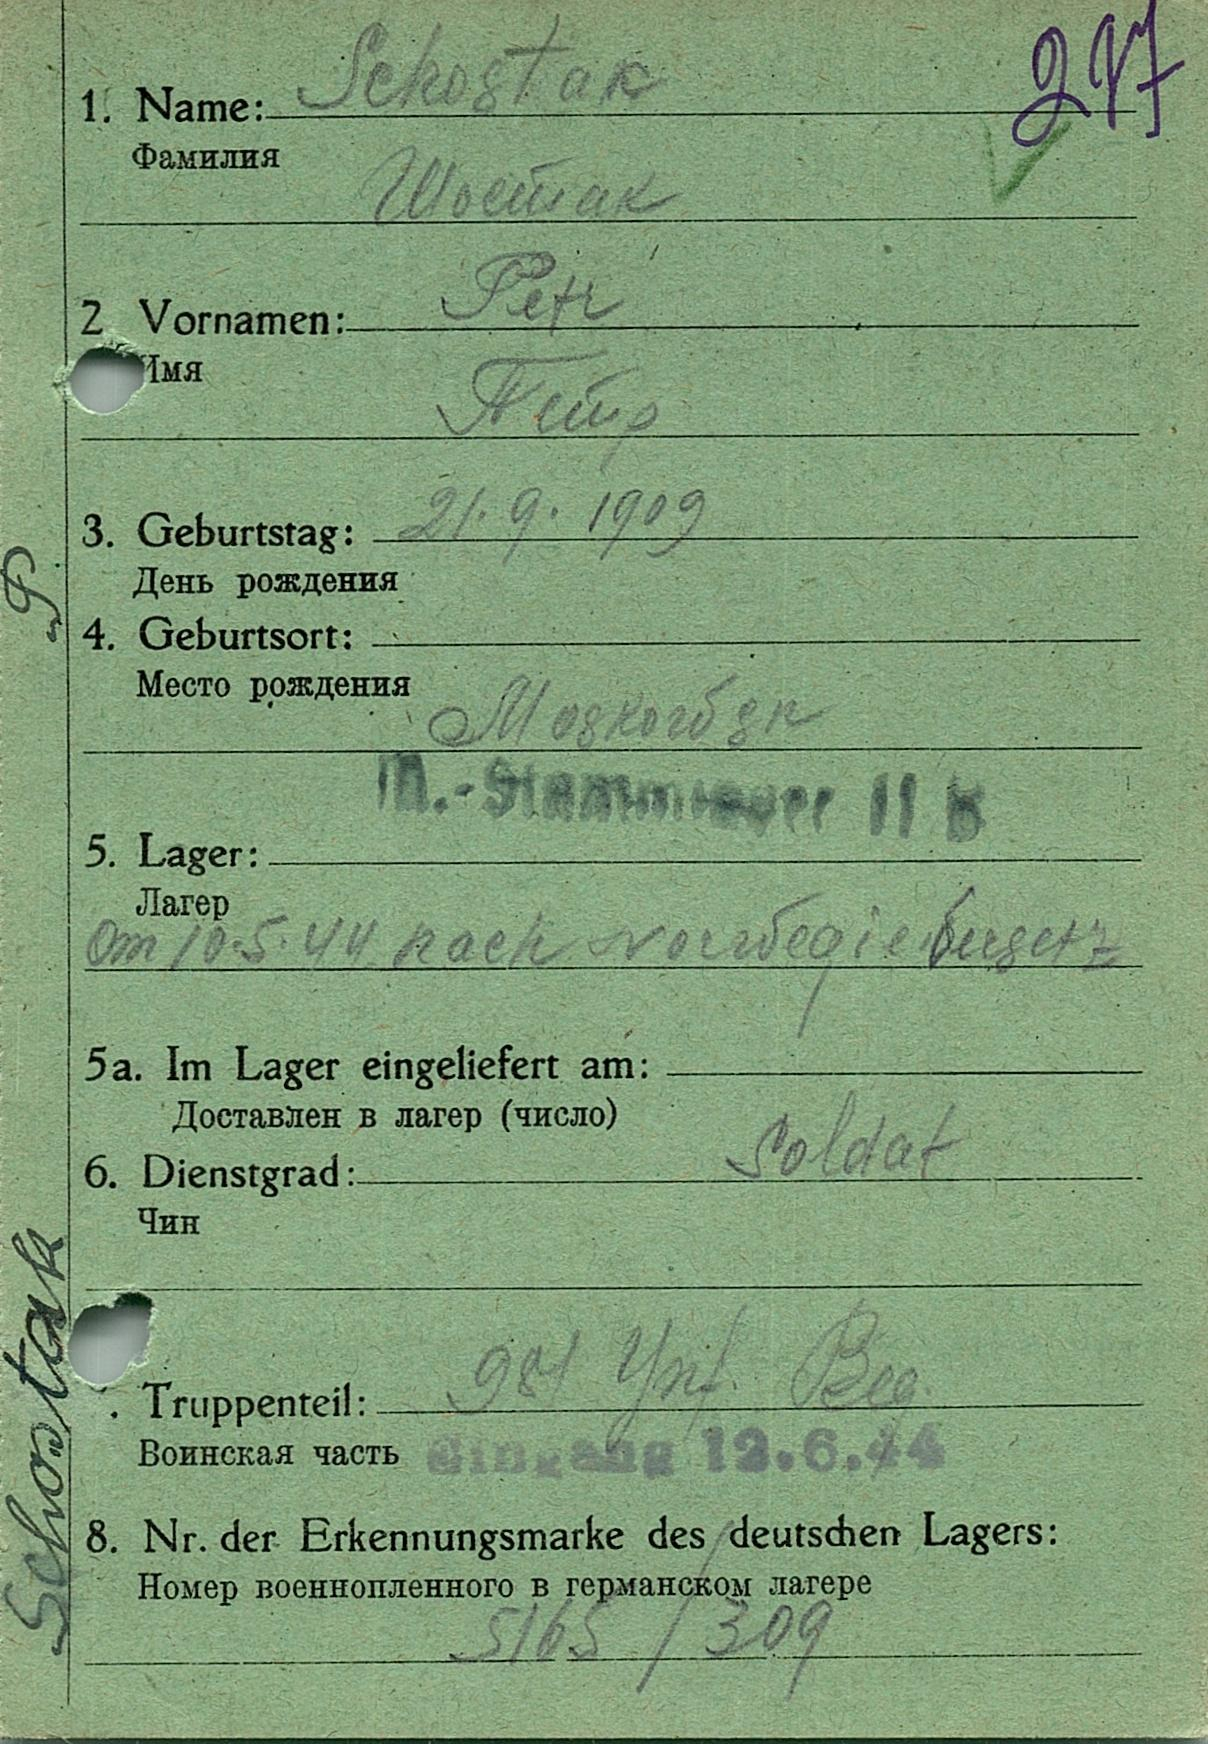 247
1. Name: Schostak
Фамилия
Шостак
2 Vornamen: Petr
Имя
Петр
3. Geburtstag: 21.9.1909
День рождения
4. Geburtsort:
Место рождения
M.-Stammlager II B
5. Lager:
Лагер
Om 10.5.44 nach
5a. Im Lager eingeliefert am:
Доставлен в лагер (число)
6. Dienstgrad: Soldat
Чин
. Truppenteil: 981 Ynf. Reg.
Воинская часть Eingang 12.6.44
8. Nr. der Erkennungsmarke des deutschen Lagers:
Номер военнопленного в германском лагере
5165 / 309
Schostak P